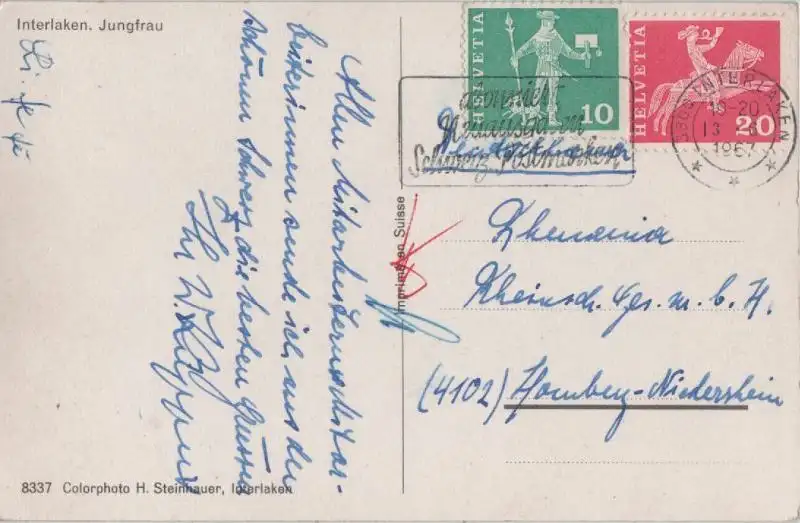 Interlaken. Jungfrau
Allen Mitarbeitern u. Mitar-
beiterinnen sende ich aus der
schönen Schweiz die besten Grüsse
Ihr W.
HELVETIA
10
HELVETIA
20
abonniert
Neuausgaben
Schweiz. Postmarken
INTERLAKEN
18-20
13
1967
Imprimé en Suisse
Rhenania
Rheinsch. Ges. m. b. H.
(4102) Homberg-Niederrhein
8337 Colorphoto H. Steinhauer, Interlaken